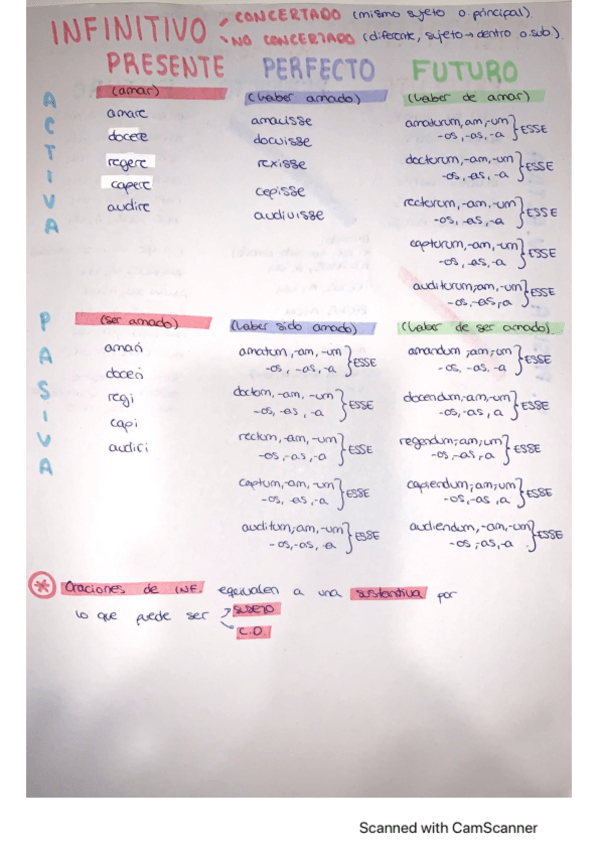 INFINITIVO
CONCERTADO (mismo sujeto o. principal).
NO CONCERTADO (diferente, sujeto → dentro o.sub.).
PRESENTE PERFECTO FUTURO
ACTIVA
(amar) (haber amado) (haber de amar)
amare amavisse amaturum, am, -um } ESSE
-os, -as, -a
docere docuisse docturum, -am, -um } ESSE
-os, -as, -a
regere rexisse recturum, -am, -um } ESSE
-os, -as, -a
capere cepisse capturum, -am, -um } ESSE
-os, -as, -a
audire audivisse auditurum, am, -um } ESSE
-os, -as, a
PASIVA
(ser amado) (haber sido amado) (haber de ser amado).
amari amatum, -am, -um } ESSE amandum, am, um } ESSE
-os, -as, -a -os, -as, -a
doceri doctum, -am, -um } ESSE docendum, am, -um } ESSE
-os, -as, -a -os, -as, a
regi rectum, -am, -um } ESSE regendum, am, um } ESSE
-os, -as, -a -os, -as, a
capi captum, -am, -um } ESSE capiendum, am, um } ESSE
-os, -as, -a -os, -as, a
audiri auditum, am, -um } ESSE audiendum, -am, -um } ESSE
-os, -as, -a -os, -as, -a
* Oraciones de INF. equivalen a una sustantiva por
lo que puede ser → SUJETO
→ C.D.
Scanned with CamScanner